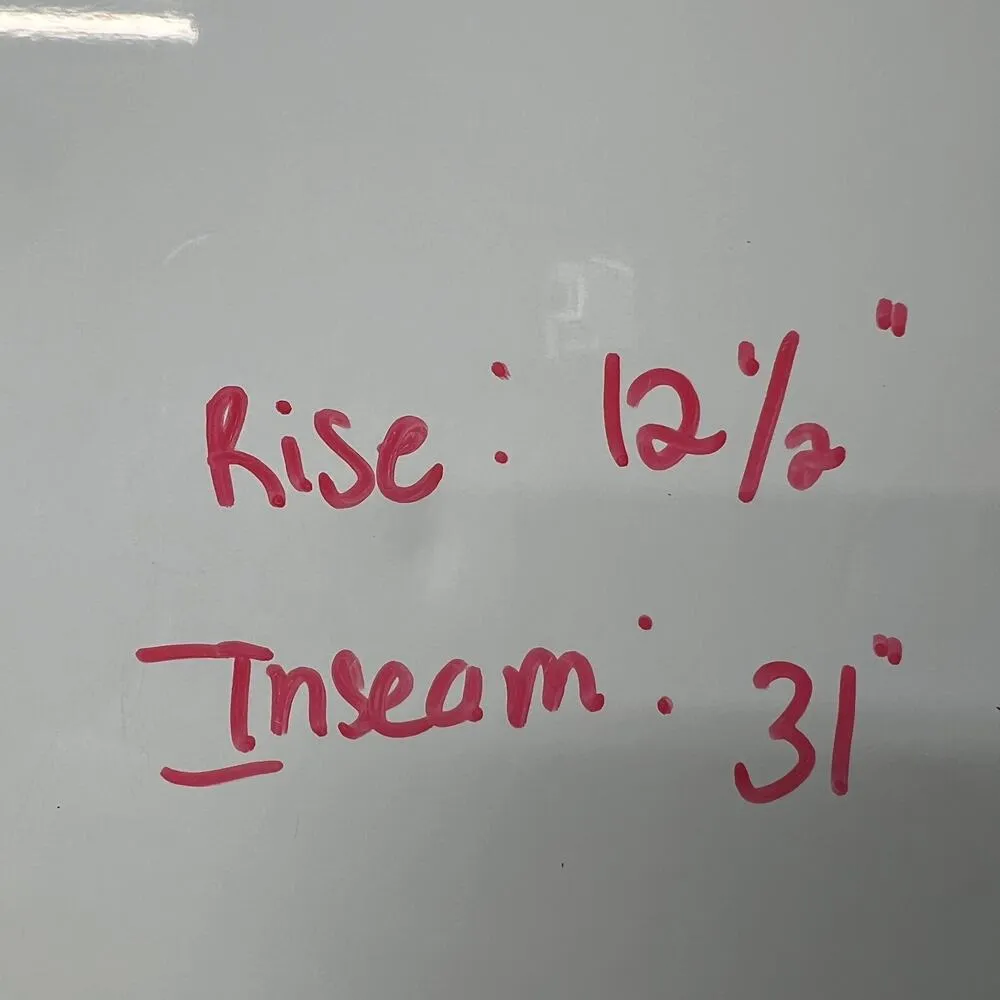 Rise: 12 1/2"
Inseam: 31"